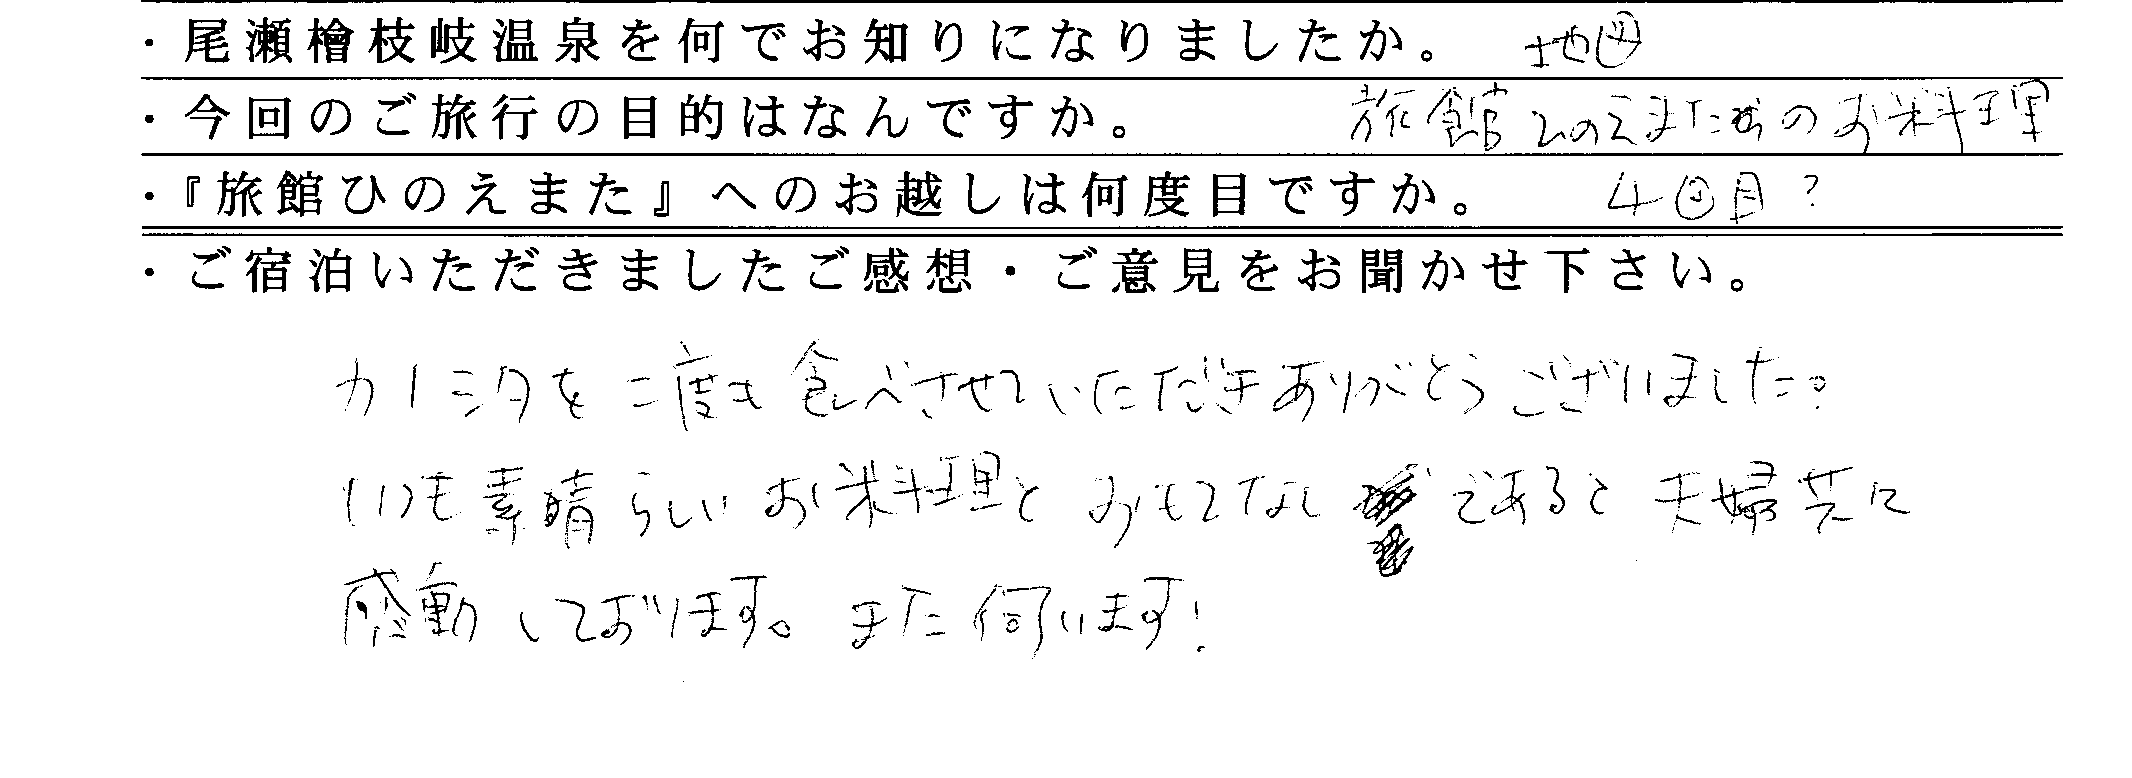 ・尾瀬檜枝岐温泉を何でお知りになりましたか。 地図
・今回のご旅行の目的はなんですか。 旅館ひのえまたさんのお料理
・『旅館ひのえまた』へのお越しは何度目ですか。 4回目?
・ご宿泊いただきましたご感想・ご意見をお聞かせ下さい。
カノシタを二度も食べさせていただきありがとうございました。
いつも素晴らしいお料理とおもてなしであると夫婦共に
感動しております。また伺います!